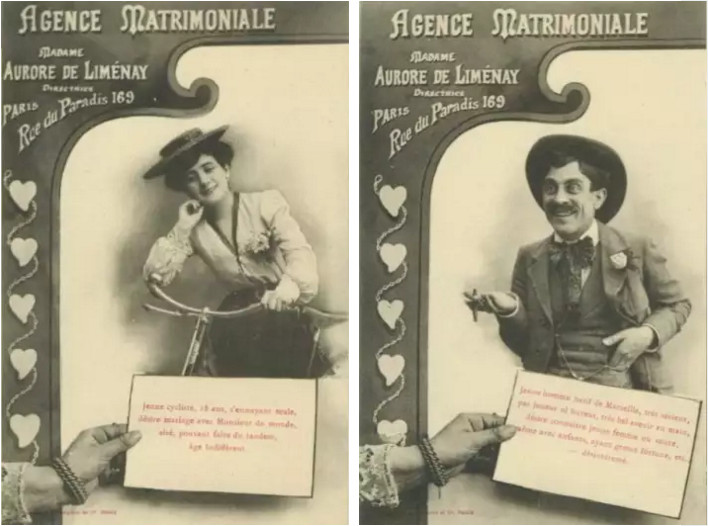 AGENCE MATRIMONIALE
MADAME
AURORE DE LIMÉNAY
DIRECTRICE
PARIS
Rue du Paradis 169
Jeune cycliste, 18 ans, s'ennuyant seule,
désire mariage avec Monsieur du monde,
aisé, pouvant faire du tandem,
âge indifférent
AGENCE MATRIMONIALE
MADAME
AURORE DE LIMÉNAY
DIRECTRICE
PARIS
Rue du Paradis 169
Jeune homme natif de Marseille, très sérieux,
pas joueur ni buveur, très bel avenir en main,
désire connaître jeune femme ou veuve,
même avec enfants, ayant grosse fortune, etc.
— désintéressé.